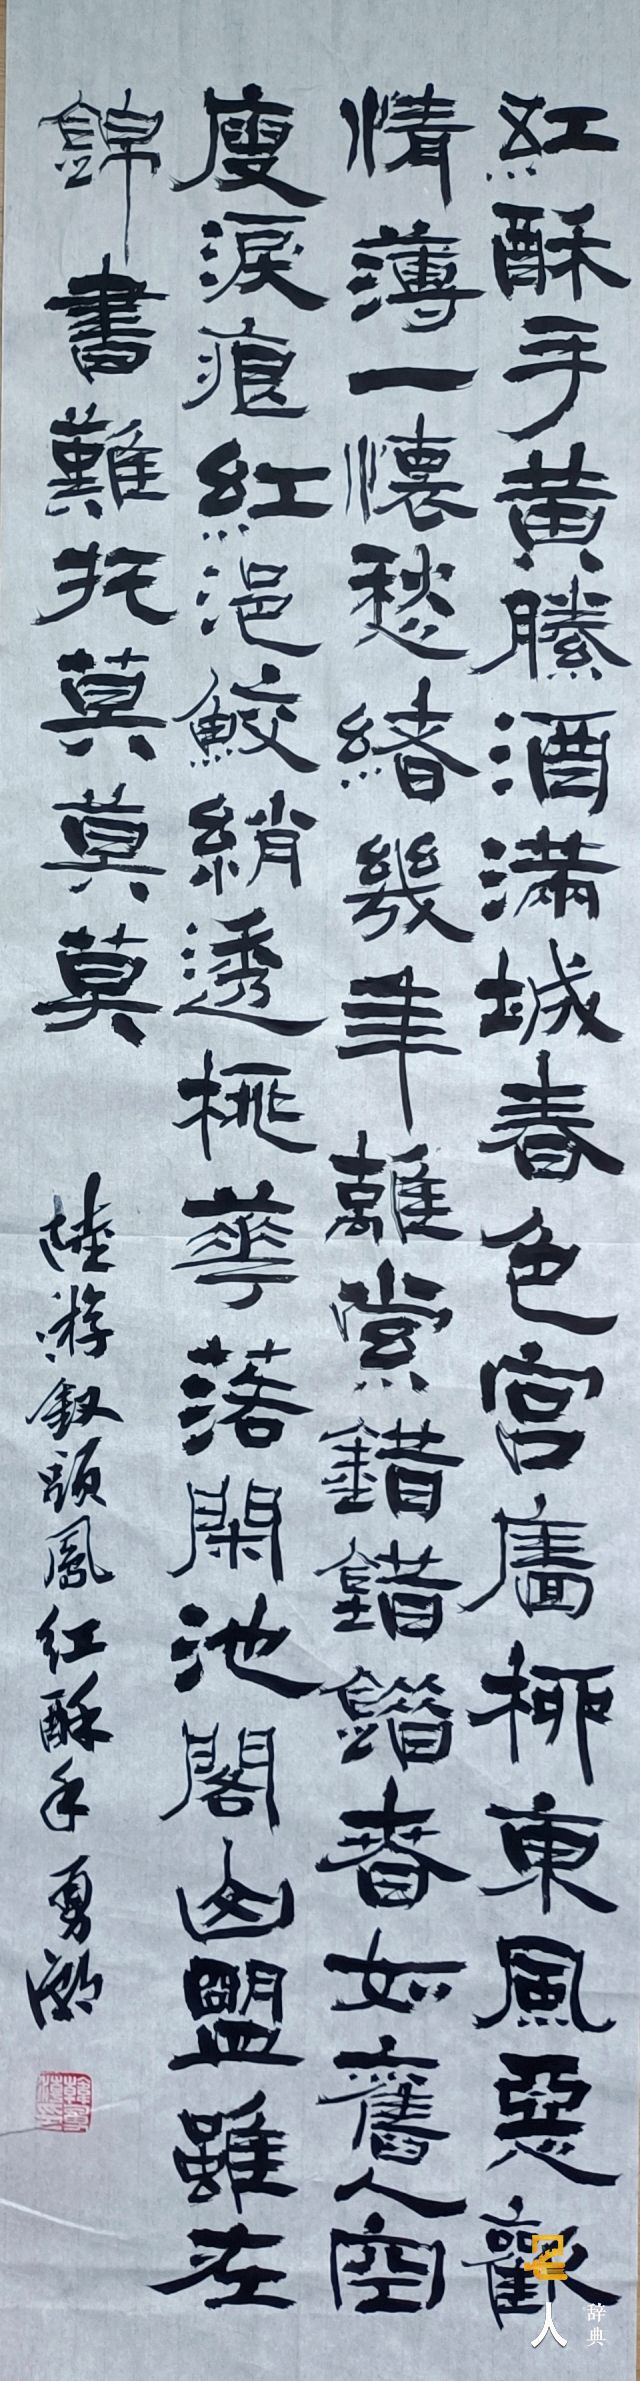 紅酥手黄縢酒滿城春色宮牆柳東風惡歡
情薄一懷愁緒幾年離索錯錯錯春如舊人空
瘦淚痕紅浥鮫綃透桃華落閑池閣山盟雖在
錦書難托莫莫莫
陸游釵頭鳳紅酥手 勇
名人
辞典